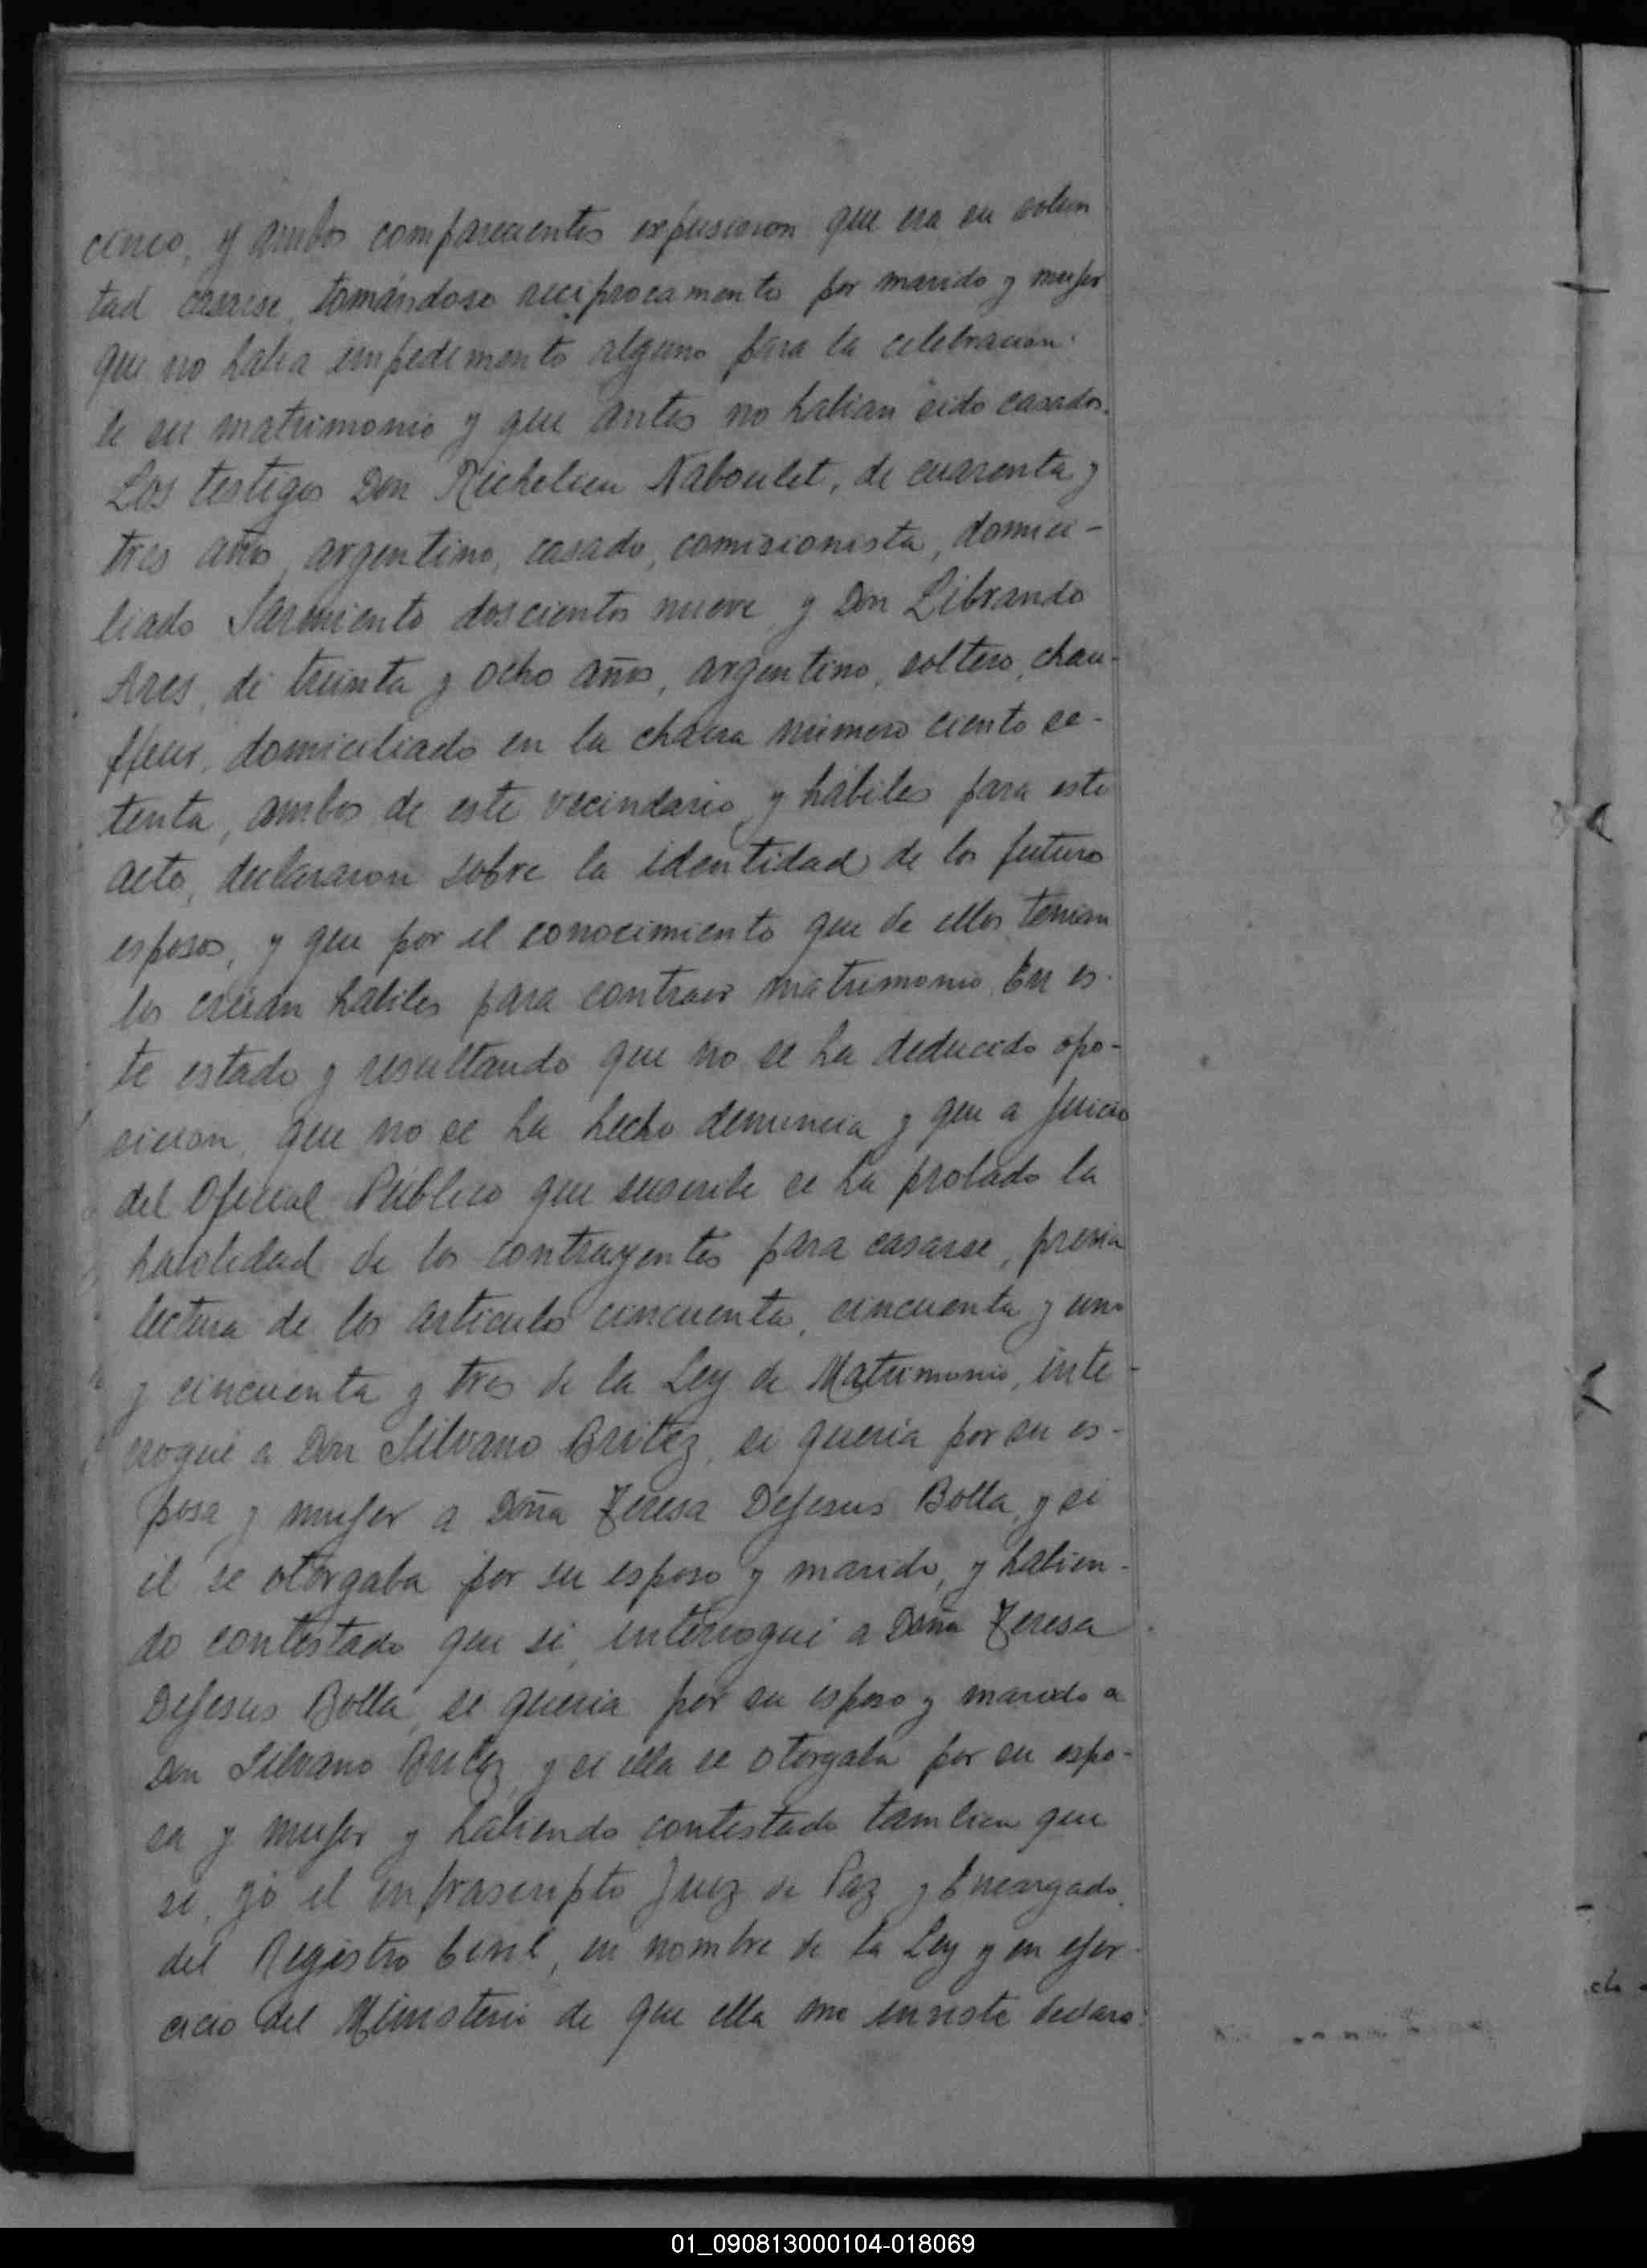 cinco, y ambos comparecientes expusieron que era su volun
tad casarse, tomándose reciprocamente por marido y mujer
que no habia impedimento alguno para la celebracion
de su matrimonio y que antes no habian sido casados.
Los testigos Don Richelieu Naboulet, de cuarenta y
tres años, argentino, casado, comisionista, domici-
liado Sarmiento doscientos nueve y Don Librando
Ares, de treinta y ocho años, argentino, soltero, chau-
ffeur, domiciliado en la chacra número ciento se-
tenta, ambos de este vecindario y hábiles para este
acto, declararon sobre la identidad de los futuros
esposos, y que por el conocimiento que de ellos tenian
los creian habiles para contraer matrimonio. En es-
te estado y resultando que no se ha deducido opo-
sicion, que no se ha hecho denuncia y que a juicio
del Oficial Público que suscribe se ha probado la
habilidad de los contrayentes para casarse, previa
lectura de los articulos cincuenta, cincuenta y uno
y cincuenta y tres de la Ley de Matrimonio, inte-
rrogué a Don Silvano Britez, si queria por su es-
posa y mujer a Doña Teresa Dejesus Bolla, y si
él se otorgaba por su esposo y marido, y habien-
do contestado que si, interrogué a Doña Teresa
Dejesus Bolla, si queria por su esposo y marido a
Don Silvano Britez, y si ella se otorgaba por su espo-
sa y mujer y habiendo contestado tambien que
si, yo el infrascripto Juez de Paz y Encargado
del Registro Civil, en nombre de la Ley y en ejer-
cicio del Ministerio de que ella me inviste declaro:
01_090813000104-018069